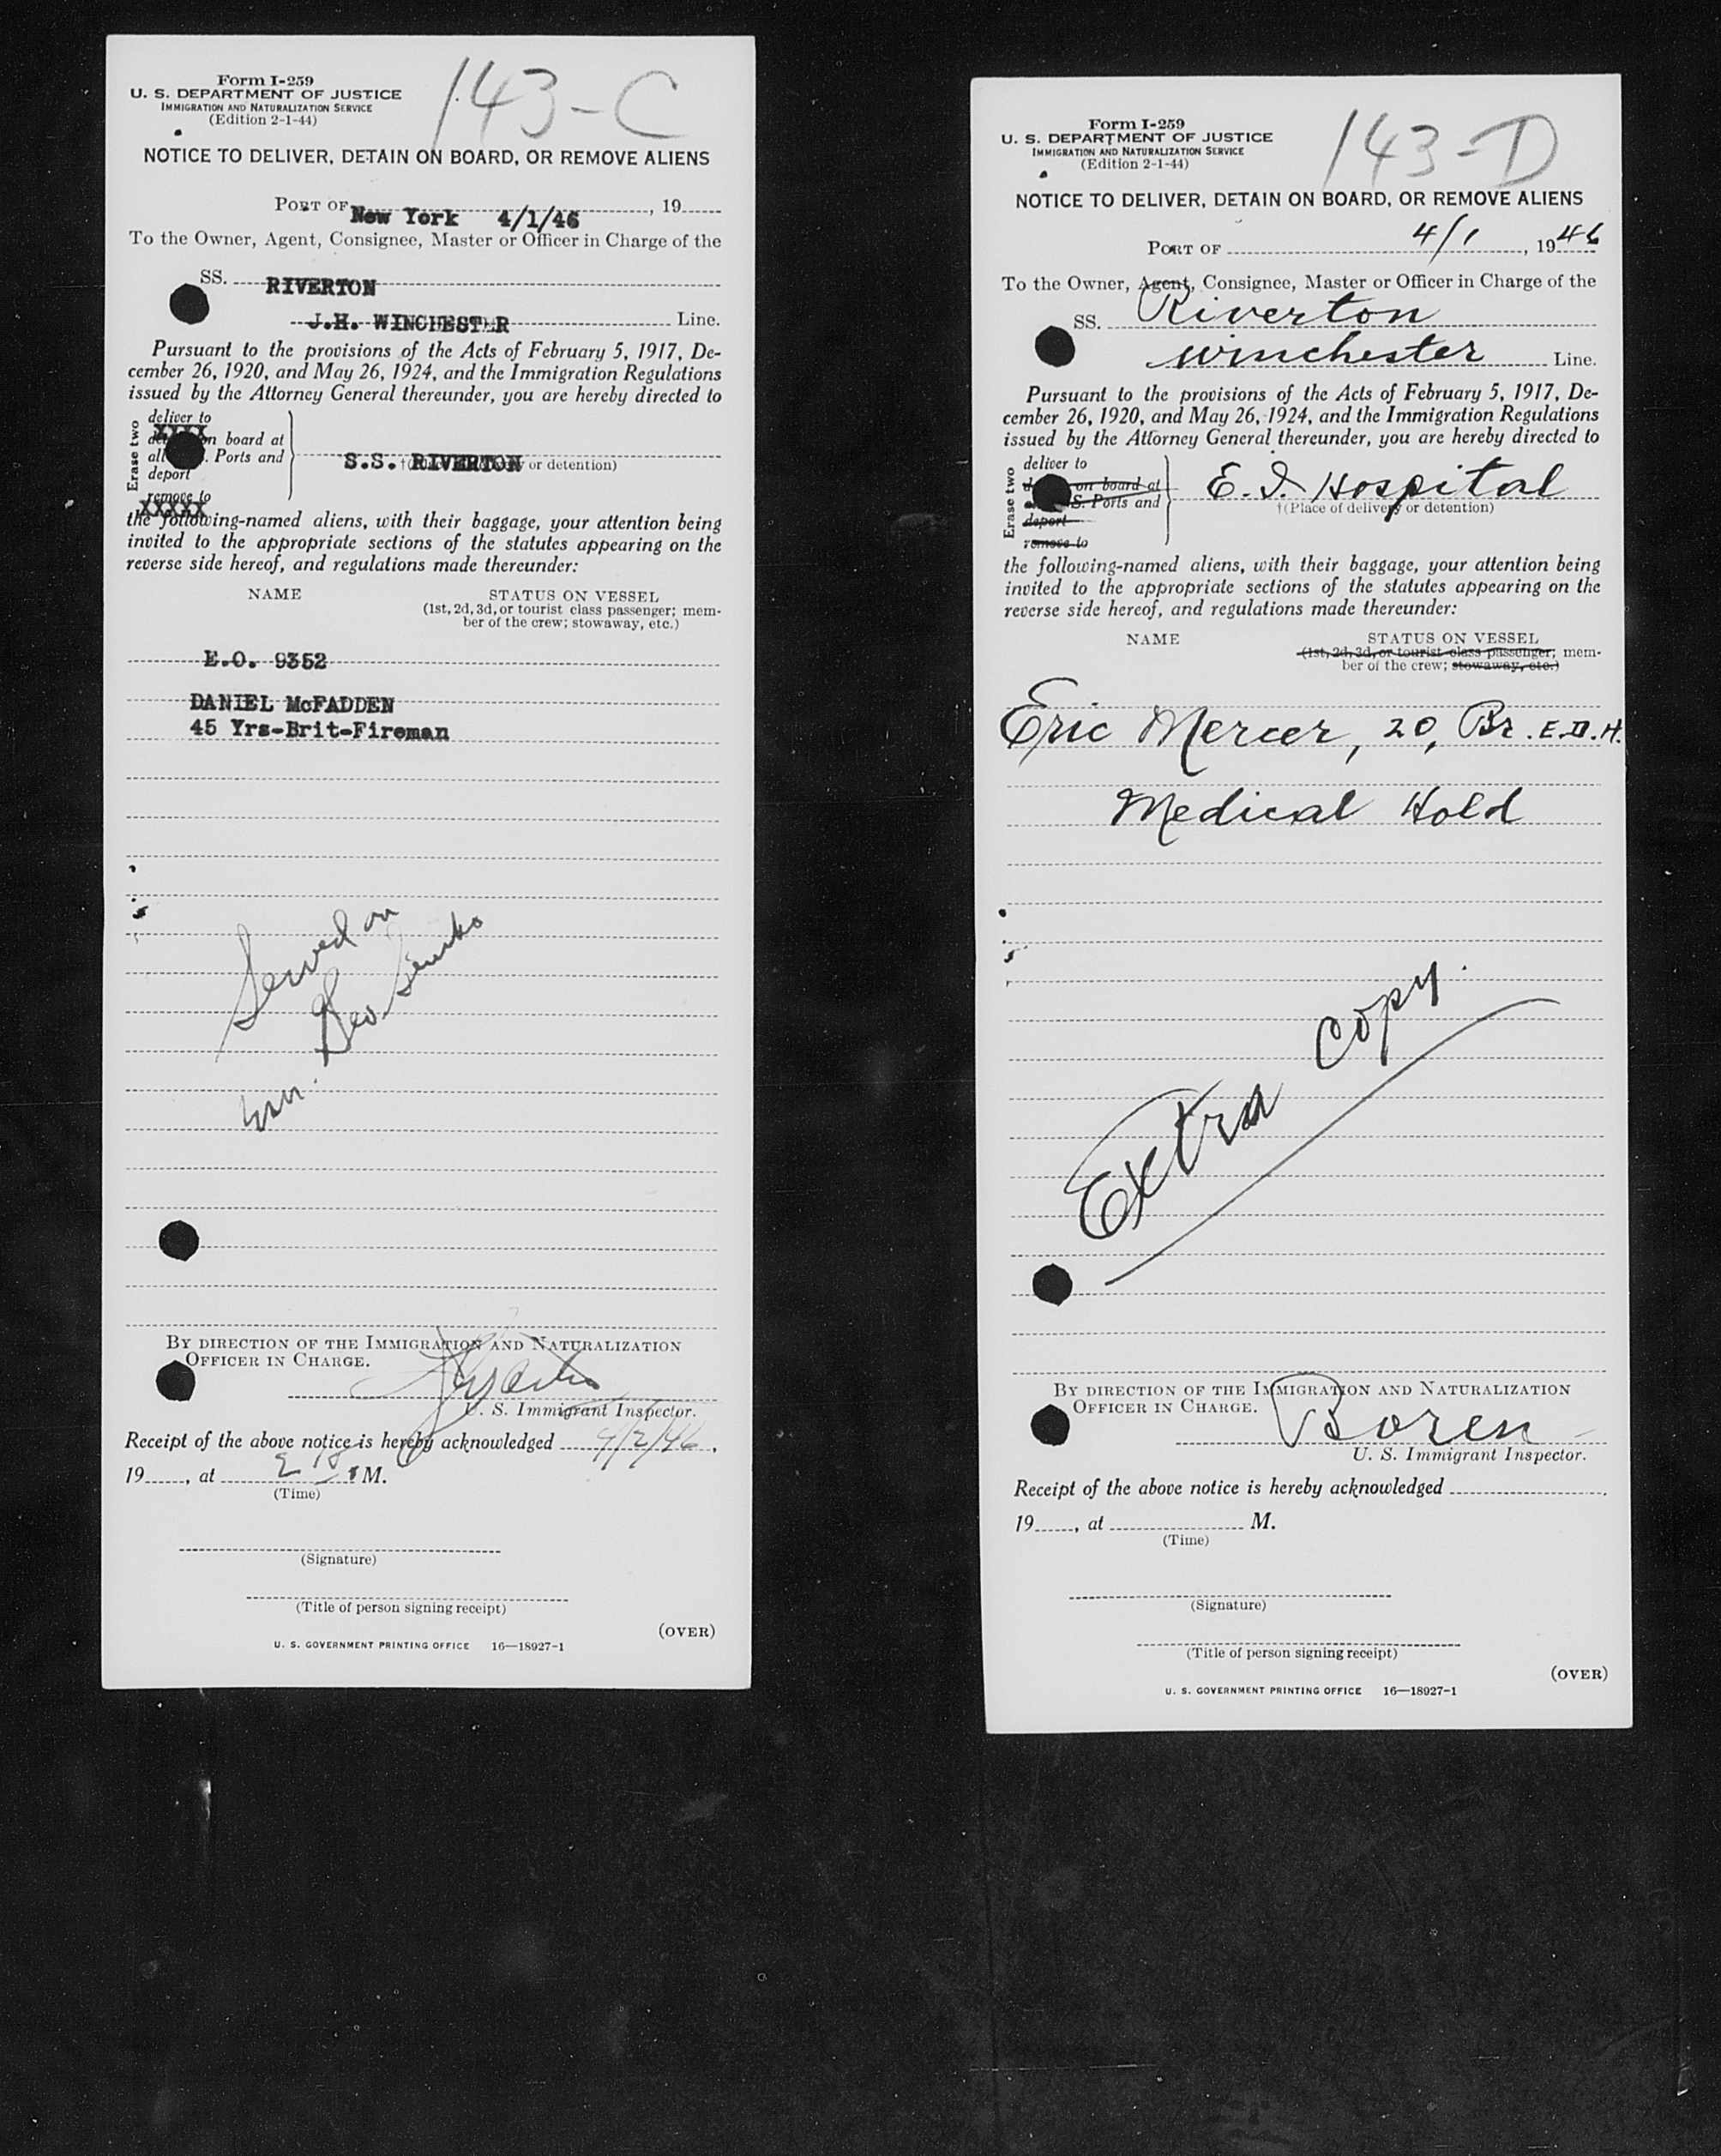 Form I-259
U. S. DEPARTMENT OF JUSTICE
IMMIGRATION AND NATURALIZATION SERVICE
(Edition 2-1-44)
143-C
NOTICE TO DELIVER, DETAIN ON BOARD, OR REMOVE ALIENS
PORT OF New York 4/1/46, 19
To the Owner, Agent, Consignee, Master or Officer in Charge of the
SS. RIVERTON
J.H. WINCHESTER Line.
Pursuant to the provisions of the Acts of February 5, 1917, De-
cember 26, 1920, and May 26, 1924, and the Immigration Regulations
issued by the Attorney General thereunder, you are hereby directed to
Erase two
deliver to
XXXX
on board at
Ports and
deport
remove to
XXXXX
S.S. RIVERTON or detention)
the following-named aliens, with their baggage, your attention being
invited to the appropriate sections of the statutes appearing on the
reverse side hereof, and regulations made thereunder:
NAME STATUS ON VESSEL
(1st, 2d, 3d, or tourist class passenger; mem-
ber of the crew; stowaway, etc.)
E.O. 9352
DANIEL McFADDEN
45 Yrs-Brit-Fireman
Served on
Geo
BY DIRECTION OF THE IMMIGRATION AND NATURALIZATION
OFFICER IN CHARGE.
U. S. Immigrant Inspector.
Receipt of the above notice is hereby acknowledged 4/2/46,
19, at M.
(Time)
(Signature)
(Title of person signing receipt)
(OVER)
U. S. GOVERNMENT PRINTING OFFICE 16—18927-1
Form I-259
U. S. DEPARTMENT OF JUSTICE
IMMIGRATION AND NATURALIZATION SERVICE
(Edition 2-1-44)
143-D
NOTICE TO DELIVER, DETAIN ON BOARD, OR REMOVE ALIENS
PORT OF 4/1, 1946
To the Owner, Agent, Consignee, Master or Officer in Charge of the
SS. Riverton
Winchester Line.
Pursuant to the provisions of the Acts of February 5, 1917, De-
cember 26, 1920, and May 26, 1924, and the Immigration Regulations
issued by the Attorney General thereunder, you are hereby directed to
Erase two
deliver to
on board at
S. Ports and
deport
remove to
E. I. Hospital
†(Place of delivery or detention)
the following-named aliens, with their baggage, your attention being
invited to the appropriate sections of the statutes appearing on the
reverse side hereof, and regulations made thereunder:
NAME STATUS ON VESSEL
(1st, 2d, 3d, or tourist class passenger; mem-
ber of the crew; stowaway, etc.)
Eric Mercer, 20, Br. E.D.H.
Medical Hold
Extra Copy.
BY DIRECTION OF THE IMMIGRATION AND NATURALIZATION
OFFICER IN CHARGE.
Boren
U. S. Immigrant Inspector.
Receipt of the above notice is hereby acknowledged
19, at M.
(Time)
(Signature)
(Title of person signing receipt)
(OVER)
U. S. GOVERNMENT PRINTING OFFICE 16—18927-1